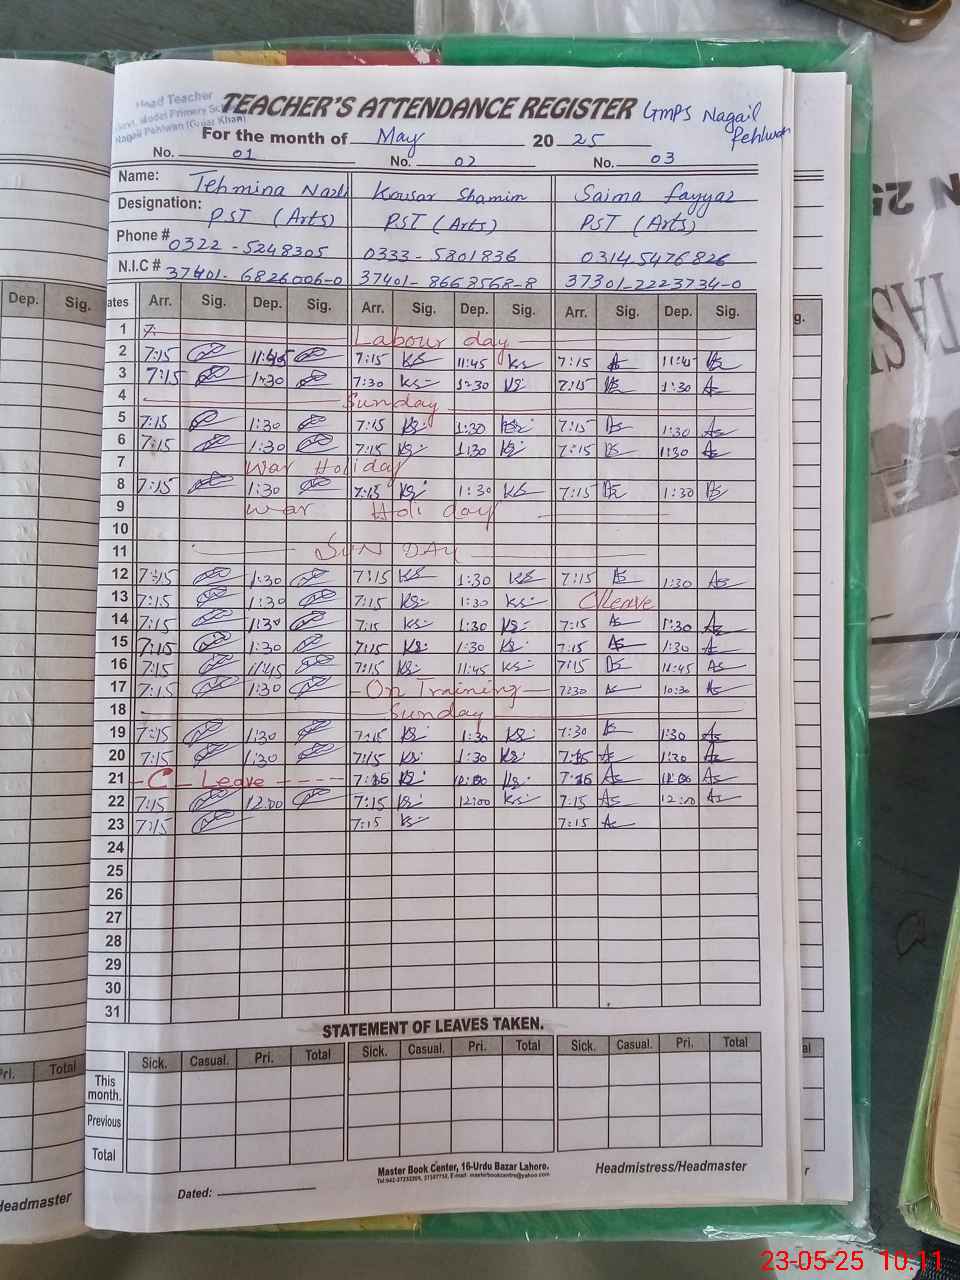 Head Teacher
Govt. Model Primary Sc
Nagail Pehlwan (Gujar Khan)
TEACHER'S ATTENDANCE REGISTER GMPS Nagail Pehlwan
For the month of May 20 25
No. 01 No. 02 No. 03
Name: Tehmina Nazli Kousar Shamim Saima Fayyaz
Designation: PST (Arts) PST (Arts) PST (Arts)
Phone # 0322-5248305 0333-5801836 03145476826
N.I.C # 37401-6826006-0 37401-8668568-8 37301-2223734-0
Dep. Sig. ates Arr. Sig. Dep. Sig. Arr. Sig. Dep. Sig. Arr. Sig. Dep. Sig. g.
1 7: Labour day
2 7:15 11:45 7:15 KS 11:45 KS 7:15 As 11:45 As
3 7:15 1:30 7:30 KS 1:30 KS 7:15 As 1:30 As
4 Sunday
5 7:15 1:30 7:15 KS 1:30 KS 7:15 As 1:30 As
6 7:15 1:30 7:15 KS 1:30 KS 7:15 As 1:30 As
7 War Holiday
8 7:15 1:30 7:15 KS 1:30 KS 7:15 As 1:30 As
9 War Holi day
10
11 SUN DAY
12 7:15 1:30 7:15 KS 1:30 KS 7:15 As 1:30 As
13 7:15 1:30 7:15 KS 1:30 KS C/Leave
14 7:15 1:30 7:15 KS 1:30 KS 7:15 As 1:30 As
15 7:15 1:30 7:15 KS 1:30 KS 7:15 As 1:30 As
16 7:15 11:45 7:15 KS 11:45 KS 7:15 As 11:45 As
17 7:15 1:30 On Training 7:30 As 10:30 As
18 Sunday
19 7:15 1:30 7:15 KS 1:30 KS 7:30 As 1:30 As
20 7:15 1:30 7:15 KS 1:30 KS 7:15 As 1:30 As
21 C Leave 7:15 KS 12:00 KS 7:15 As 12:00 As
22 7:15 12:00 7:15 KS 12:00 KS 7:15 As 12:00 As
23 7:15 7:15 KS 7:15 As
24
25
26
27
28
29
30
31
STATEMENT OF LEAVES TAKEN.
Pri. Total Sick. Casual. Pri. Total Sick. Casual. Pri. Total Sick. Casual. Pri. Total al
This month.
Previous
Total
Master Book Center, 16-Urdu Bazar Lahore.
Headmistress/Headmaster
Headmaster
Dated:
23-05-25 10:11